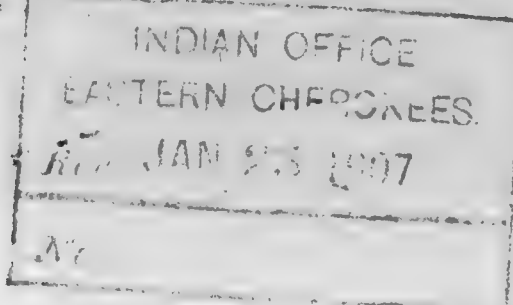 INDIAN OFFICE
EASTERN CHEROKEES.
JAN 1907
No